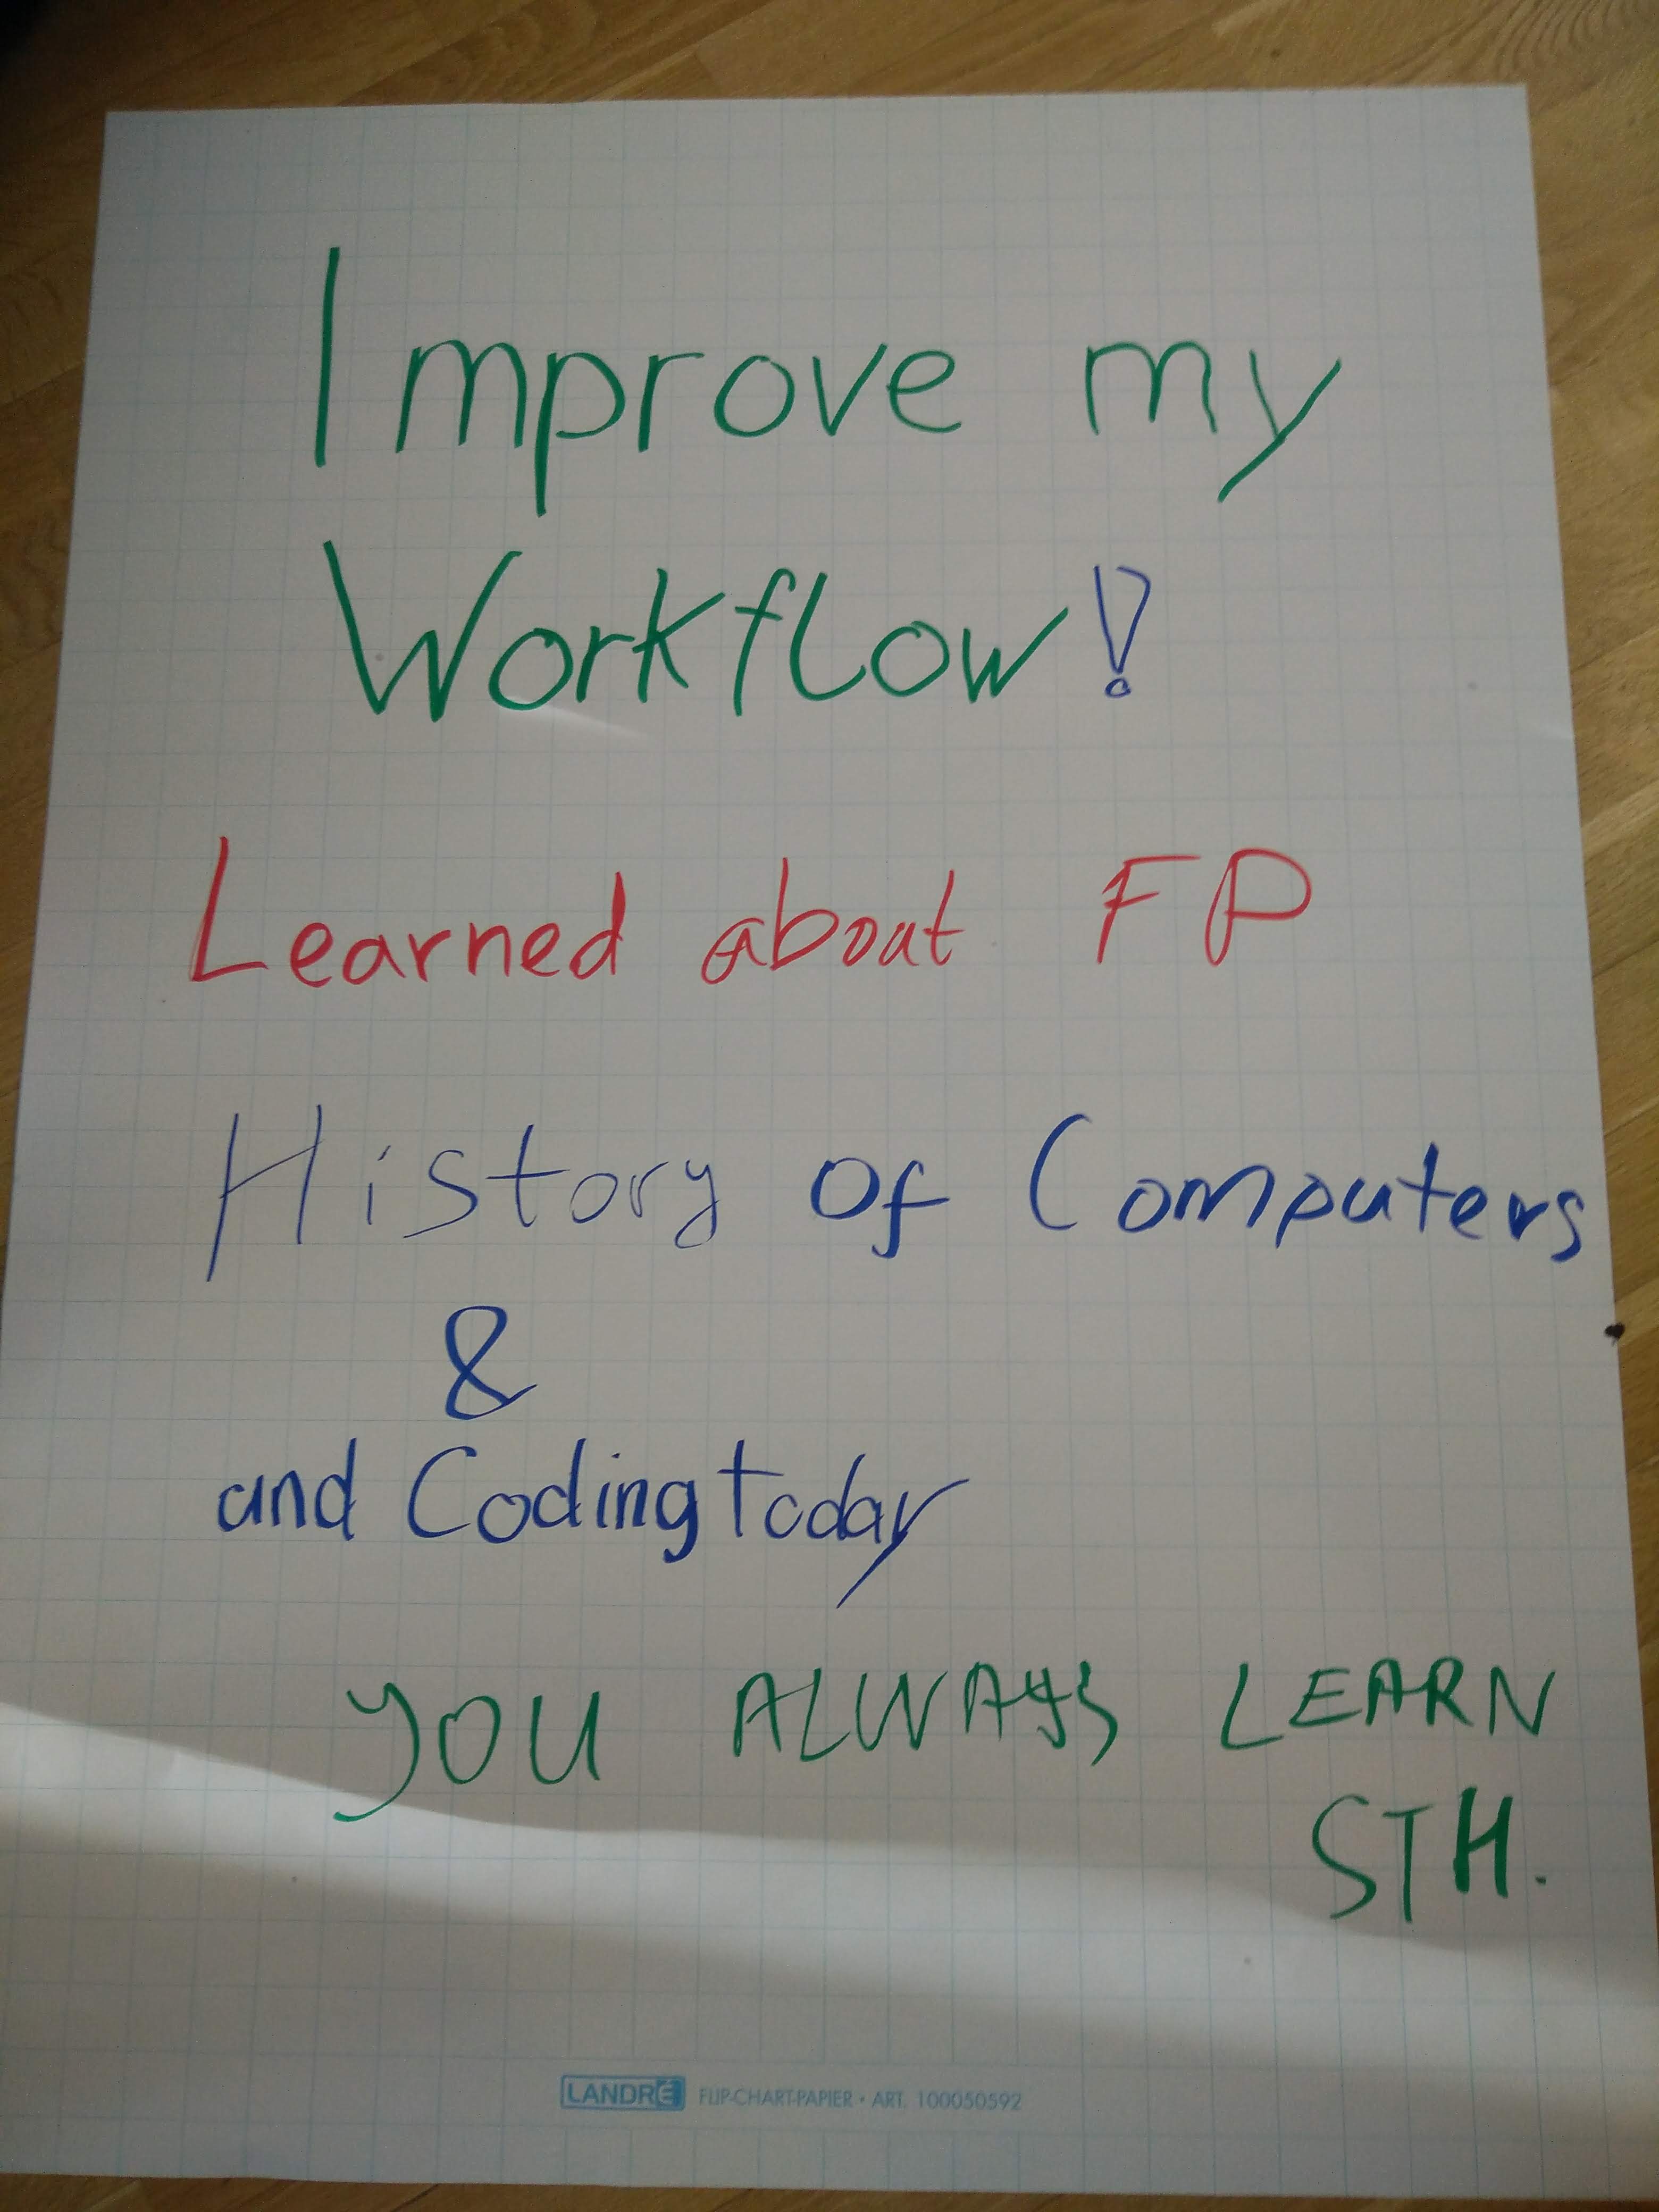 Improve my
Workflow!
Learned about FP
History of Computers
&
and Coding today
YOU ALWAYS LEARN
STH.
LANDRÉ FLIP-CHART-PAPIER • ART. 100050592